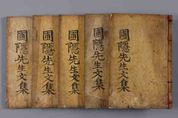 圃隱先生文集
圃隱先生文集
圃隱先生文集
圃隱先生文集
圃隱先生文集